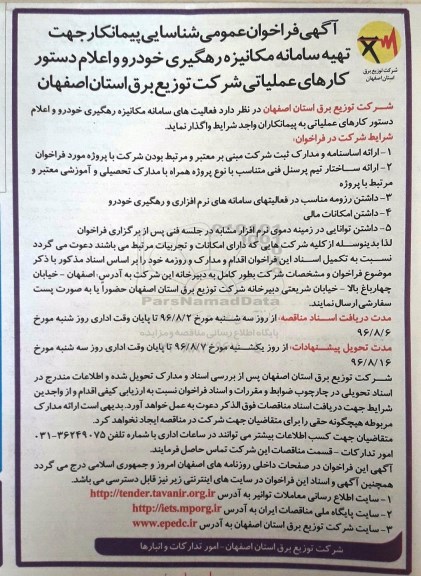 آگهی فراخوان عمومی شناسایی پیمانکار جهت
تهیه سامانه مکانیزه رهگیری خودرو و اعلام دستور
کارهای عملیاتی شرکت توزیع برق استان اصفهان
شرکت توزیع برق
استان اصفهان
شرکت توزیع برق استان اصفهان در نظر دارد فعالیت های سامانه مکانیزه رهگیری خودرو و اعلام
دستور کارهای عملیاتی به پیمانکاران واجد شرایط واگذار نماید.
شرایط شرکت در فراخوان:
۱- ارائه اساسنامه و مدارک ثبت شرکت مبنی بر معتبر و مرتبط بودن شرکت با پروژه مورد فراخوان
۲- ارائه ساختار تیم پرسنل فنی متناسب با نوع پروژه همراه با مدارک تحصیلی و آموزشی معتبر و
مرتبط با پروژه
۳- داشتن رزومه مناسب در فعالیتهای سامانه های نرم افزاری و رهگیری خودرو
۴- داشتن امکانات مالی
۵- داشتن توانایی در زمینه دموی نرم افزار مشابه در جلسه فنی پس از برگزاری فراخوان
لذا بدینوسیله از کلیه شرکت هایی که دارای امکانات و تجربیات مرتبط می باشند دعوت می گردد
نسبت به تکمیل اسناد این فراخوان اقدام و مدارک و رزومه خود را بر اساس اسناد مذکور با ذکر
موضوع فراخوان و مشخصات شرکت بطور کامل به دبیرخانه این شرکت به آدرس: اصفهان - خیابان
چهارباغ بالا - خیابان شریعتی دبیرخانه شرکت توزیع برق استان اصفهان حضوراً یا به صورت پست
سفارشی ارسال نمایند.
ParsNamadData
پایگاه اطلاع رسانی مناقصه و مزایده
مدت دریافت اسناد مناقصه: از روز سه شنبه مورخ ۹۶/۸/۲ تا پایان وقت اداری روز شنبه مورخ
۹۶/۸/۶
مدت تحویل پیشنهادات: از روز یکشنبه مورخ ۹۶/۸/۷ تا پایان وقت اداری روز سه شنبه مورخ
۹۶/۸/۱۶
شرکت توزیع برق استان اصفهان پس از بررسی اسناد و مدارک تحویل شده و اطلاعات مندرج در
اسناد تحویلی در چارچوب ضوابط و مقررات و اسناد فراخوان نسبت به ارزیابی کیفی اقدام و از واجدین
شرایط جهت دریافت اسناد مناقصات فوق الذکر دعوت به عمل خواهد آورد. بدیهی است ارائه مدارک
مربوطه هیچگونه حقی را برای متقاضیان جهت شرکت در مناقصه ایجاد نخواهد کرد.
متقاضیان جهت کسب اطلاعات بیشتر می توانند در ساعات اداری با شماره تلفن ۳۶۲۴۹۰۷۵-۰۳۱
امور تدارکات - قسمت مناقصات این شرکت تماس حاصل فرمایند.
آگهی این فراخوان در صفحات داخلی روزنامه های اصفهان امروز و جمهوری اسلامی درج می گردد
همچنین آگهی و اسناد این فراخوان در سایت های اینترنتی زیر نیز قابل دسترسی می باشد.
۱- سایت اطلاع رسانی معاملات توانیر به آدرس http://tender.tavanir.org.ir
۲- سایت پایگاه ملی مناقصات ایران به آدرس http://iets.mporg.ir
۳- سایت شرکت توزیع برق استان اصفهان به آدرس www.epedc.ir
شرکت توزیع برق استان اصفهان - امور تدارکات و انبارها